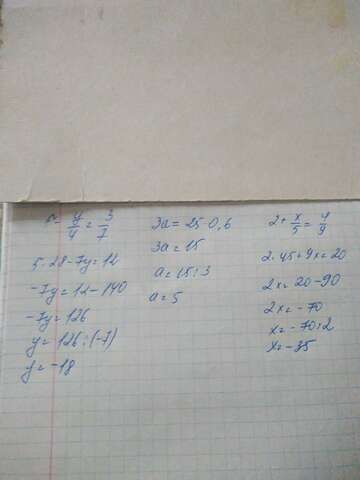 5 - y/4 = 3/7
5·28-7y=12
-7y=12-140
-7y=126
y=126:(-7)
y=-18
3a=25·0,6
3a=15
a=15:3
a=5
2+x/5=4/9
2·45+9x=20
2x=20-90
2x=-70
x=-70:2
x=-35